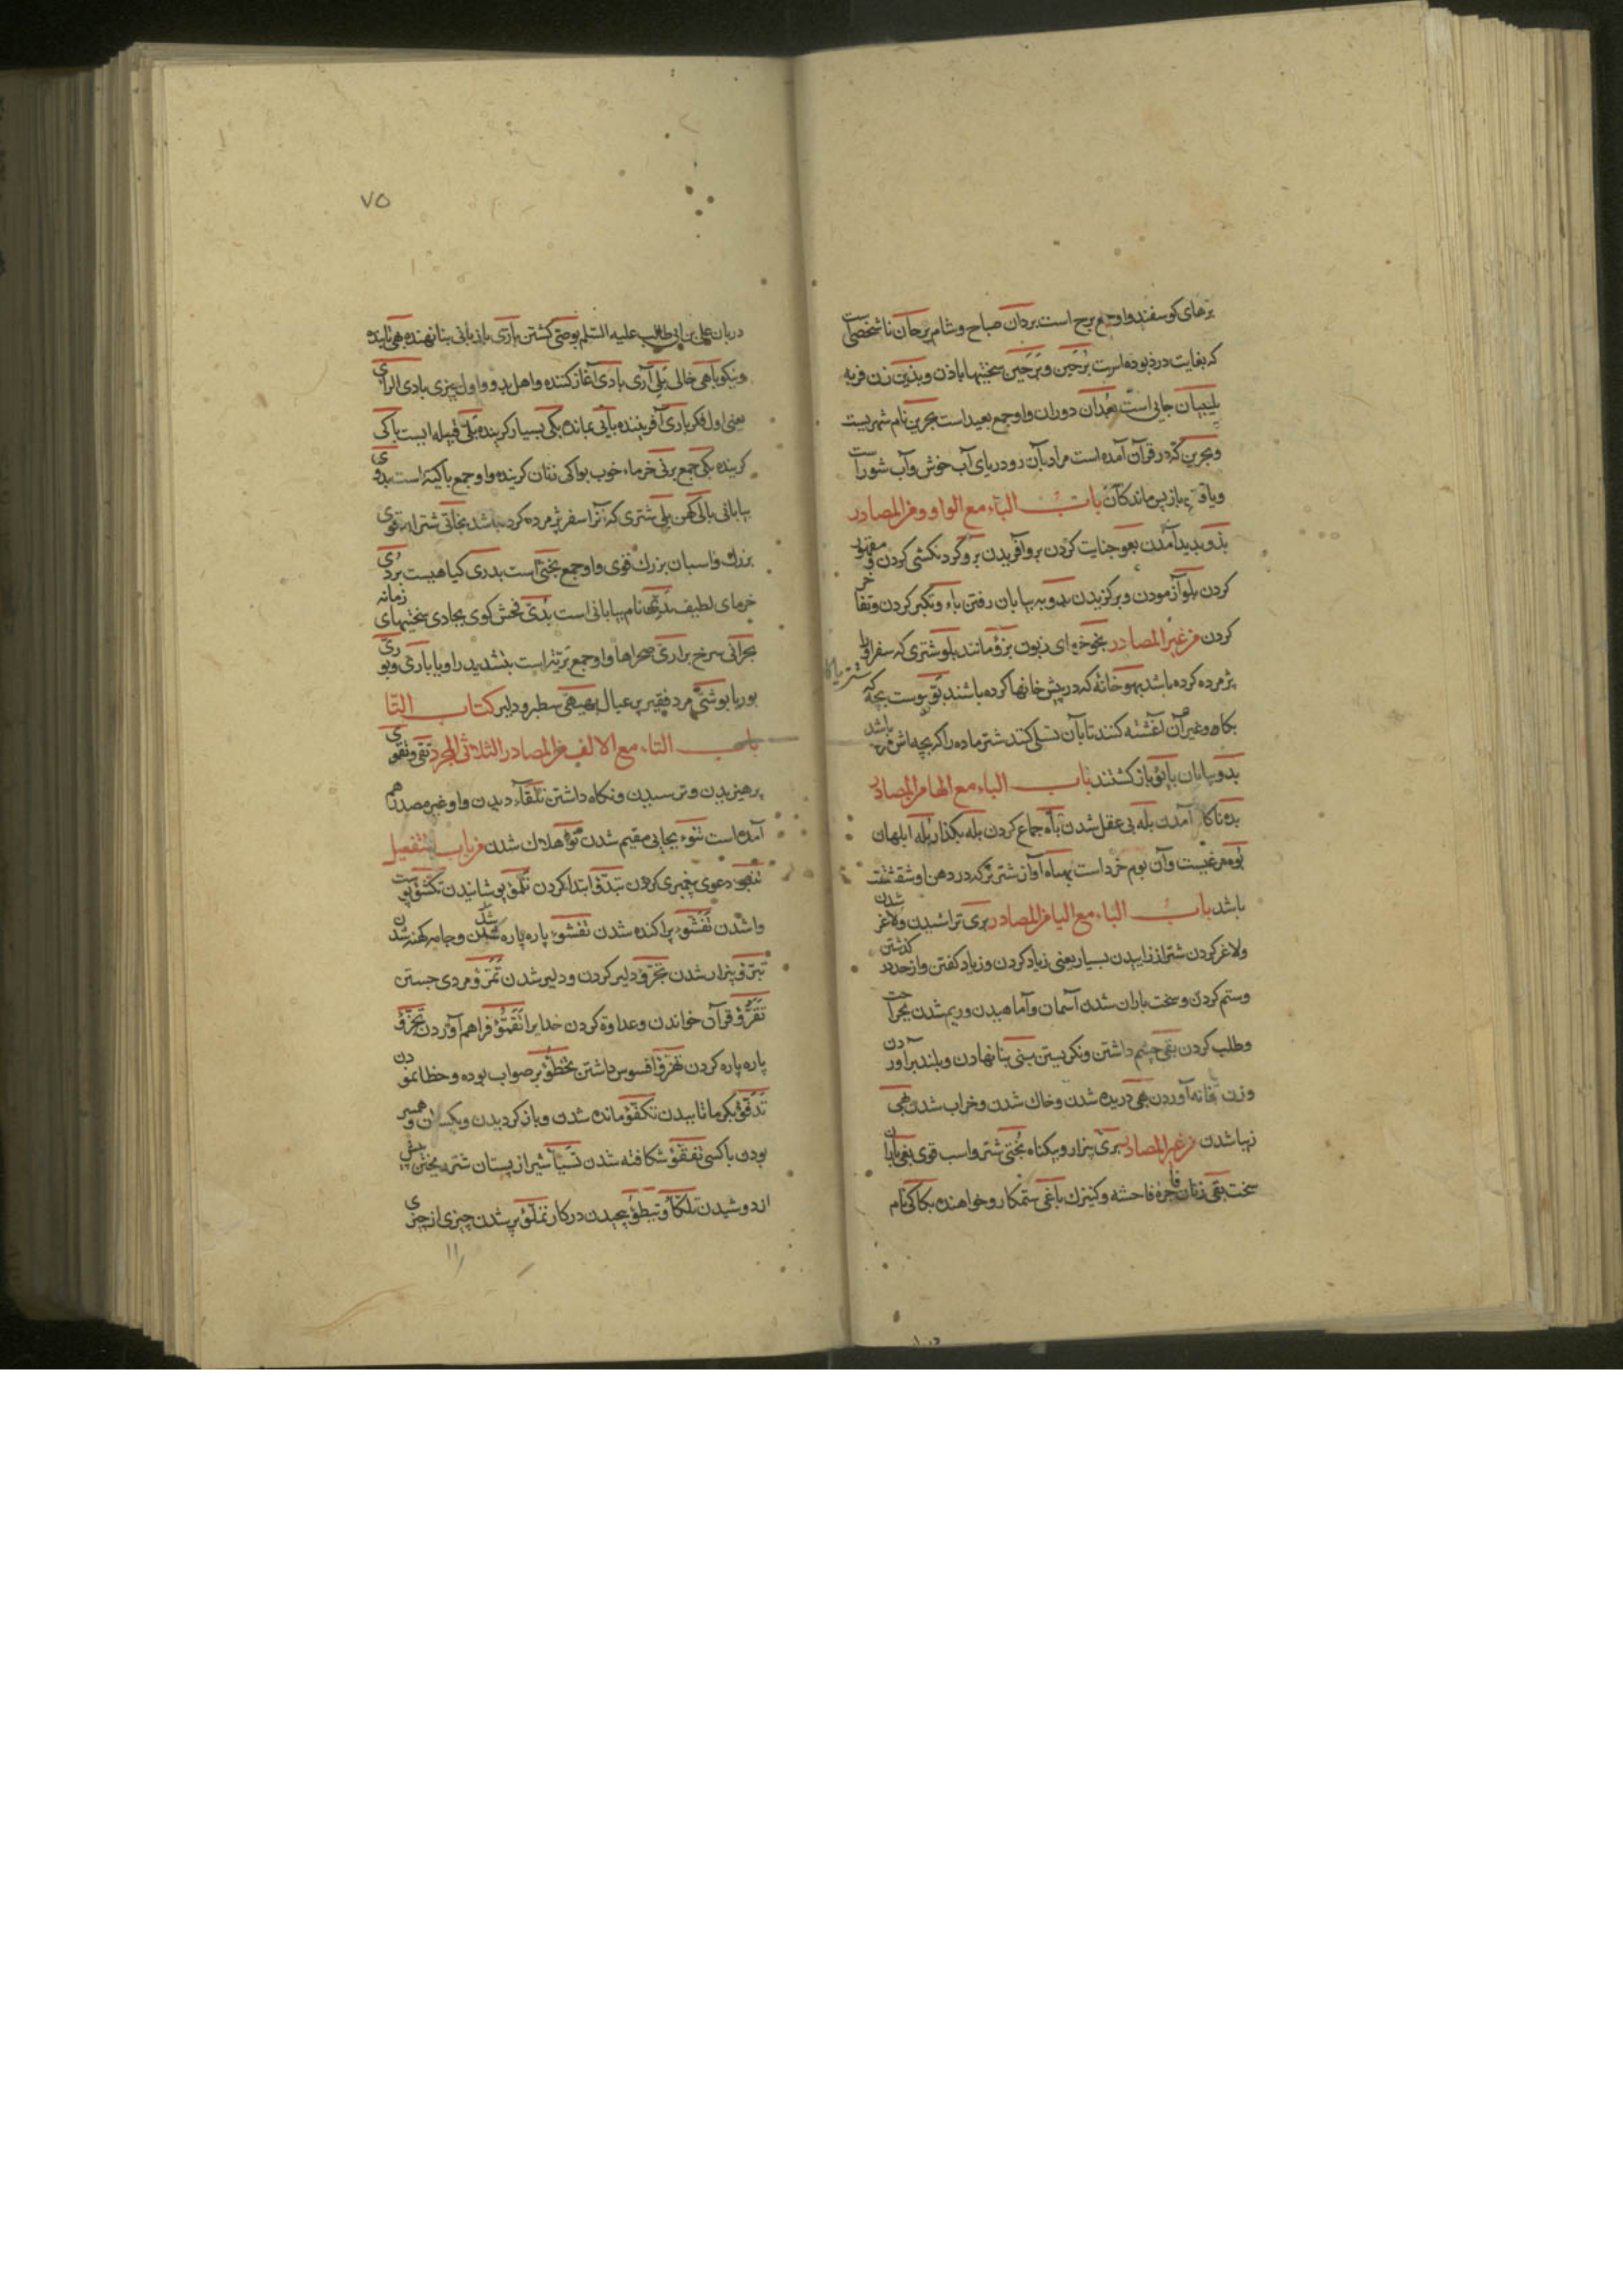 برهای کوسفند واو جمع برح است بردان صباح و شام برحان نا شخصی است
که بغایت درد بوده است برحین و برحین سختیها باذن و بدین زن فربه
بلیبیان جائی است بعدان دوران واو جمع بعید است بحرین نام شهریست
و بحرین که در قرآن آمده است مراد بآن رو دریای آب خوش و آب شور است
و باقی باز پس ماندکان باب الباء مع الواو و من المصادر
بدو بدید آمدن بعو جنایت کردن برو آفریدن برو کردنکشی کردن و مقهور
کردن بلو آزمودن و برکزیدن بدو به بیابان رفتن باء و تکبر کردن و تفاخر
کردن من غیر المصادر بخو خرمای زبون بزؤ مانند بلو شتری که سفر او را
پژمرده کرده باشد بهو خانه که در پیش خانها کرده باشند بو پوست بچه که
بکاه و غیر آن آغشته کنند تا بآن تسلی کند شتر ماده را که بچه اش مرده باشد
بدو بیابان باؤ باز کشتند باب الباء مع الها من المصادر
بده ناکاه آمدن بله بی عقل شدن باه جماع کردن بله بکذار بله ابلهان
بوه مرغیست و آن بوم خرد است بهباه آواز شتر نر که در دهن او شقشقه
باشد باب الباء مع الیا من المصادر بری تراشیدن و لاغر شدن
و لاغر کردن شتر از زاییدن بسیار بغی زیاد کردن و زیاد کفتن و از حد در کذشتن
و ستم کردن و سخت باران شدن آسمان و آماهیدن و ریم شدن جراحت
و طلب کردن بقی چشم داشتن و نکریستن بنی بنا نهادن و بلند برآوردن
و زن بخانه آوردن بهی دریده شدن و خاک شدن و خراب شدن بهی
زیبا شدن من غیر المصادر بری بیزار و بیکناه بختی شتر و اسب قوی بغی بابان
سخت بغی زنان فاجره فاحشه و کنیزک باغی ستمکار و خواهنده بکاکی نام
۷۵
دربان علی بن ابی طالب علیه السلم بوصی کشتن بازی بازبانی بنا نهنده بهی تابنده
و نیکو باهی خالی بلی آری بادی آغاز کننده و اهل بدو و اول چیزی بادی الرای
یعنی اول فکر باری آفریننده باقی بمانده بکی بسیار کرینده بلی قبیله ایست باکی
کرینده بکی جمع برنی خرماء خوب بواکی زنان کرینده واو جمع باکیه است بدوی
بیابانی بالی کهن بلی شتری که آنرا سفر پژمرده کرده باشد بخاتی شتران قوی
بزرک و اسبان بزرک قوی واو جمع بختی است بدری کیاهیست بردی
خرمای لطیف نام بیابانی است بذی فحش کوی بجادی سختیهای زمانه
بحرانی سرخ براری صحراها واو جمع بریة است بتشدید را و یا باری و بوری
بوریا بوشتی مرد فقیر پر عیال بهیقی سطبر و دلیر کتاب التا
باب التاء مع الالف من المصادر الثلاثی المجرد تقی و تقوی
پرهیزیدن و ترسیدن و نکاه داشتن تلقاء دیدن واو غیر مصدر هم
آمده است تنوء بجایی مقیم شدن توا هلاک شدن من باب التفعیل
تنبو دعوی پیغمبری کردن تبدو ابتدا کردن تکمؤ پوشانیدن تکشؤ پوست
وا شدن تفشؤ پراکنده شدن تفشؤ پاره پاره شدن و جامه کهنه شدن
تبرؤ بیزار شدن تجرؤ دلیر کردن و دلیر شدن تمرؤ مردی جستن
تقرؤ قرآن خواندن و عداوة کردن خدایرا تقمؤ فراهم آوردن تجزؤ
پاره پاره کردن تهزؤ افسوس داشتن تخطؤ بر صواب بوده و خطا نمودن
تدفؤ بکرما تابیدن تکفؤ مانده شدن و باز کردیدن و یکسان و همسر
بودن با کسی تفقؤ شکافته شدن تسیأ شیر از پستان شتر ریختن پیش
از دوشیدن تلکأ و تبطؤ پیچیدن در کار تملؤ پر شدن چیزی از چیزی